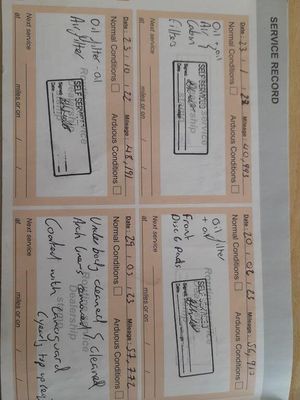 SERVICE RECORD
Date: 23 . 1 . 22 Mileage: 40,993
Normal Conditions Arduous Conditions
Oil + oil
Air &
Cabin
Filters
SELF SERVICED
Signed:
Date:
Next service
at miles or on / /
Date: 20 . 02 . 23 Mileage:
Normal Conditions Arduous Conditions
Oil filter
+ oil
Front
Disc & Pads.
SELF SERVICED
Signed:
Date:
Next service
at miles or on / /
Date: 23 . 10 . 22 Mileage: 48,191
Normal Conditions Arduous Conditions
Oil filter oil
Air filter
SELF SERVICED
Signed:
Date:
Next service
at miles or on / /
Date: 25 . 03 . 23 Mileage: 57,772
Normal Conditions Arduous Conditions
Underbody cleaned &
Arch liners removed & Cleaned
Dealership
Coated with
Next service
at miles or on / /